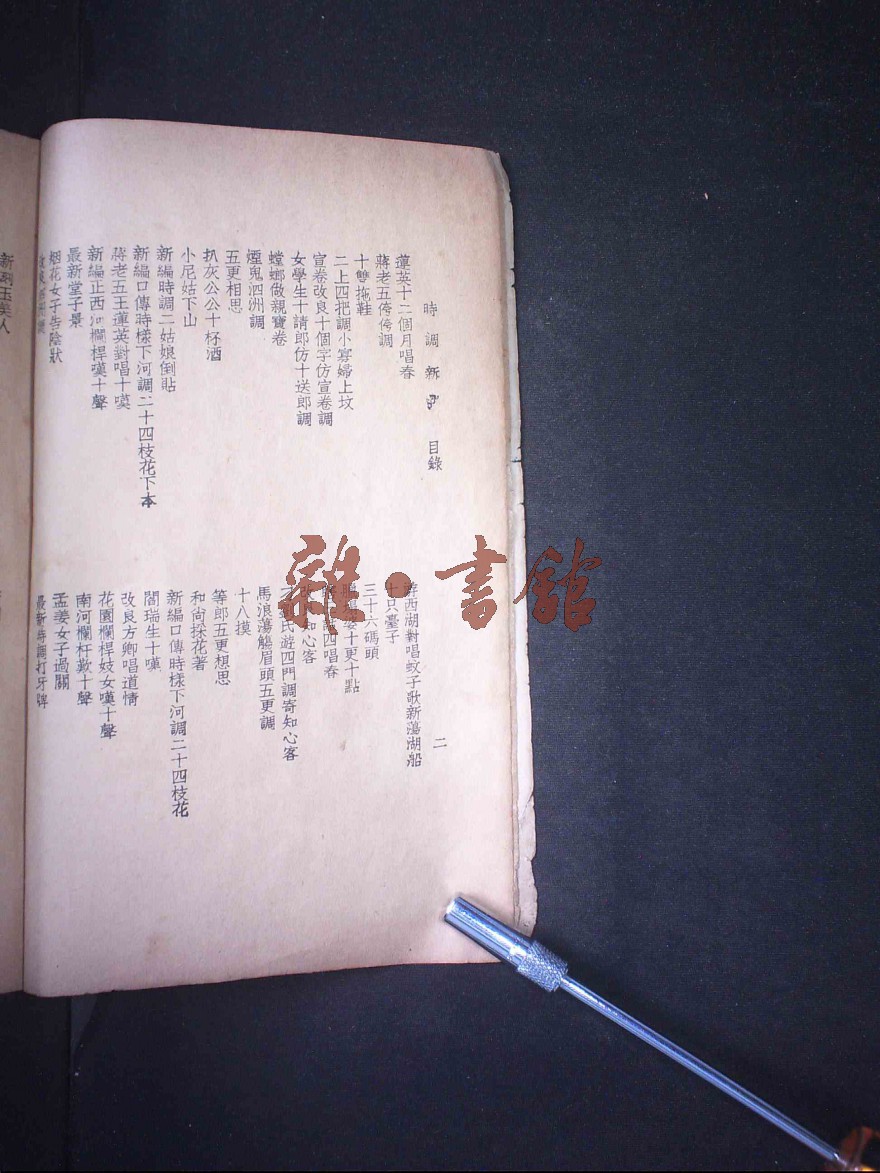 時調新 目錄
二
蓮英十二個月唱春
蔣老五侉侉調
十雙拖鞋
二上四把調小寡婦上坟
宣卷改良十個字仿宣卷調
女學生十請郎仿十送郎調
螳螂做親寶卷
煙鬼泗洲調
五更相思
扒灰公公十杯酒
小尼姑下山
新編時調二姑娘倒貼
新編口傳時樣下河調二十四枝花下本
蔣老五王蓮英對唱十嘆
新編正西河欄桿嘆十聲
最新堂子景
烟花女子告陰狀
西湖對唱蚊子歌新蕩湖船
只臺子
三十六碼頭
十更十點
四唱春
知心客
氏遊四門調寄知心客
馬浪蕩觴眉頭五更調
十八摸
等郎五更想思
和尚採花著
新編口傳時樣下河調二十四枝花
閻瑞生十嘆
改良方卿唱道情
花園欄桿妓女嘆十聲
南河欄杆歎十聲
孟姜女子過關
最新時調打牙牌
雜·書館